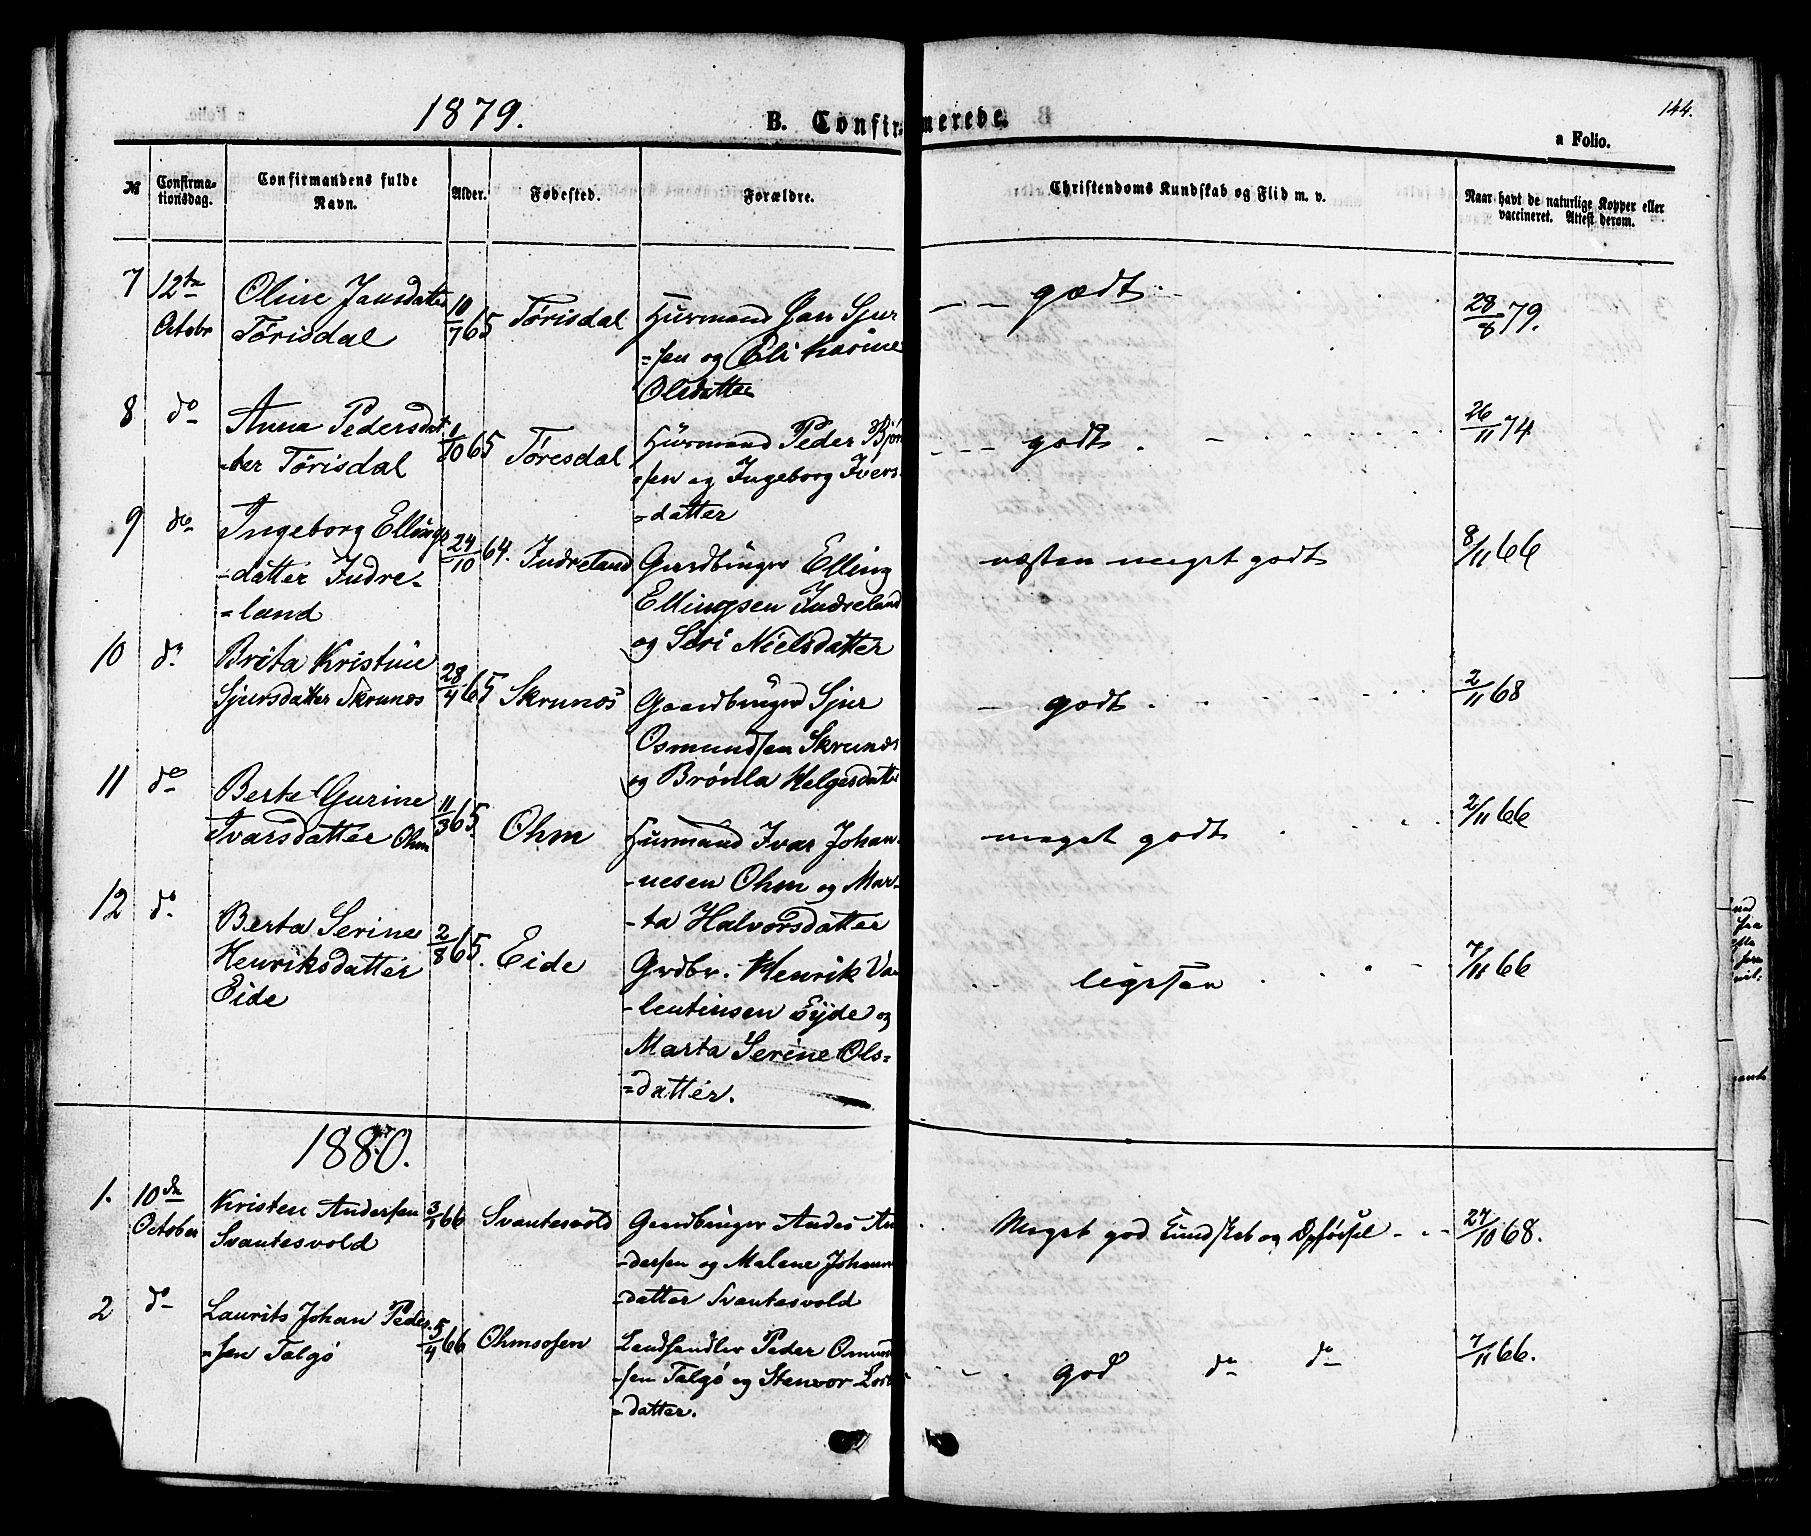 1879.
B. Confirmerede.
144.
a Folio.
№ Confirma-tionsdag. Confirmandens fulde Navn. Alder. Fødested. Forældre. Christendoms Kundskab og Flid m. v. Naar havt de naturlige Kopper eller vaccineret. Attest derom.
7 12te Octobr
Oline Jansdatter
Tørisdal
10/7 65 Tørisdal
Huusmand Jan Sjur
-sen og Eli Karine
Olsdatter
godt
28/8 79.
8 do
Anna Pedersdat
-ter Tørisdal
/10 65 Tøresdal
Huusmand Peder Bjørn
-sen og Ingeborg Ivers-
-datter
godt
26/11 74
9 do
Ingeborg Ellings
-datter Indre-
-land
24/10 64. Indreland
Gardbruger Elling
Ellingsen Indreland
og Siri Nielsdatter
næsten meget godt
8/11 66
10 do
Brita Kristine
Sjursdatter Skrunes
28/4 65 Skrunes
Gaardbruger Sjur
Osmundsen Skrunes
og Brønla Helgesdatte
godt
2/11 68
11 do
Berte Gurine
Ivarsdatter Ohm
11/3 65 Ohm
Huusmand Ivar Johan-
-nesen Ohm og Mar-
-ta Halvorsdatter
meget godt
2/11 66
12 do
Berta Serine
Henriksdatter
Eide
2/8 65. Eide
Grdbr. Henrik Va
-lentinsen Eyde og
Marta Serine Ols-
-datter.
ligesaa
7/11 66
1880.
1. 10de October
Kristen Andersen
Svantesvold
3/1 66 Svantesvold
Gaardbruger Andes An
-dersen og Malene Johann
-datter Svantesvold
Meget god Kundskab og Opførsel
27/10 68.
2 do
Laurits Johan Peder-
-sen Talgø
5/4 66 Ohmsosen
Landhandler Peder Omund
-sen Talgø og Stenvor
-datter.
god do do
7/11 66.